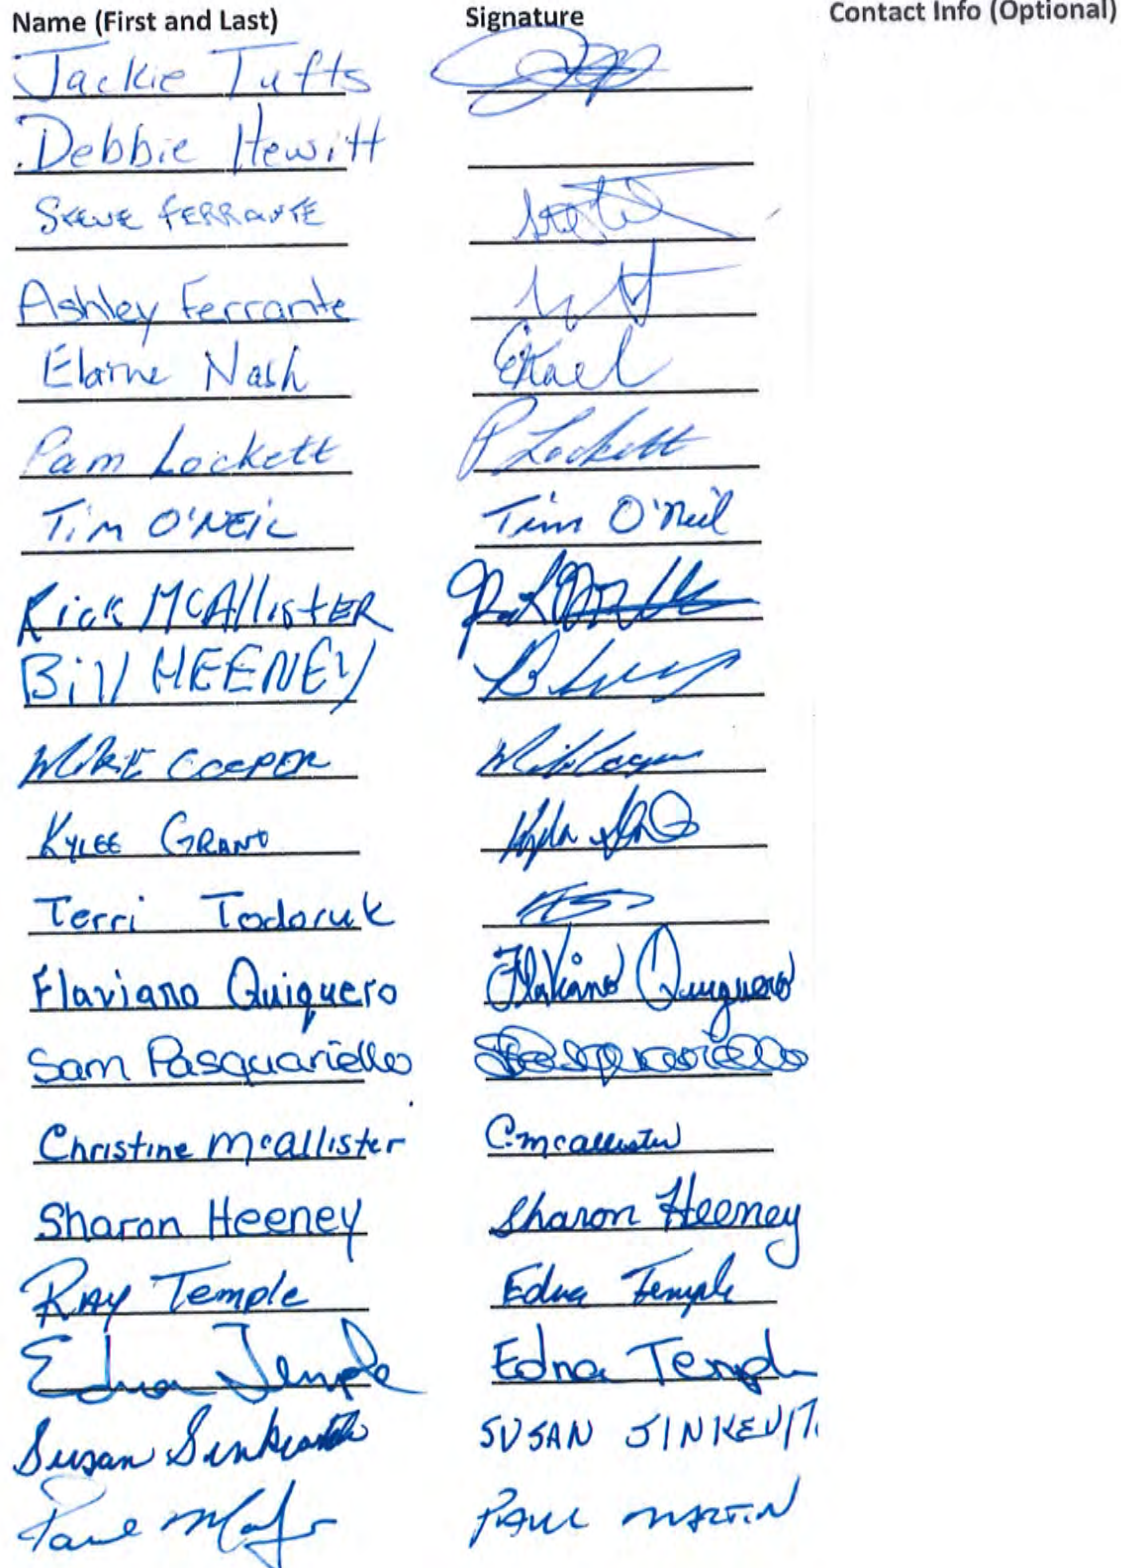 Name (First and Last) Signature Contact Info (Optional)
Jackie Tufts
Debbie Hewitt
Steve Ferrante
Ashley Ferrante
Elaine Nash
Pam Lockett P Lockett
Tim O'NEIL Tim O'Neil
Rick McAllisTER
Bill HEENEY
MIKE COOPER
KYLEE GRANT
Terri Todoruk
Flaviano Quiquero Flaviano Quiquero
Sam Pasquariello SPasquariello
Christine Mcallister C.mcallister
Sharon Heeney Sharon Heeney
RAY Temple Edna Temple
Edna Temple Edna Temple
Susan SUSAN SINKEVIT
Paul PAUL MARTIN